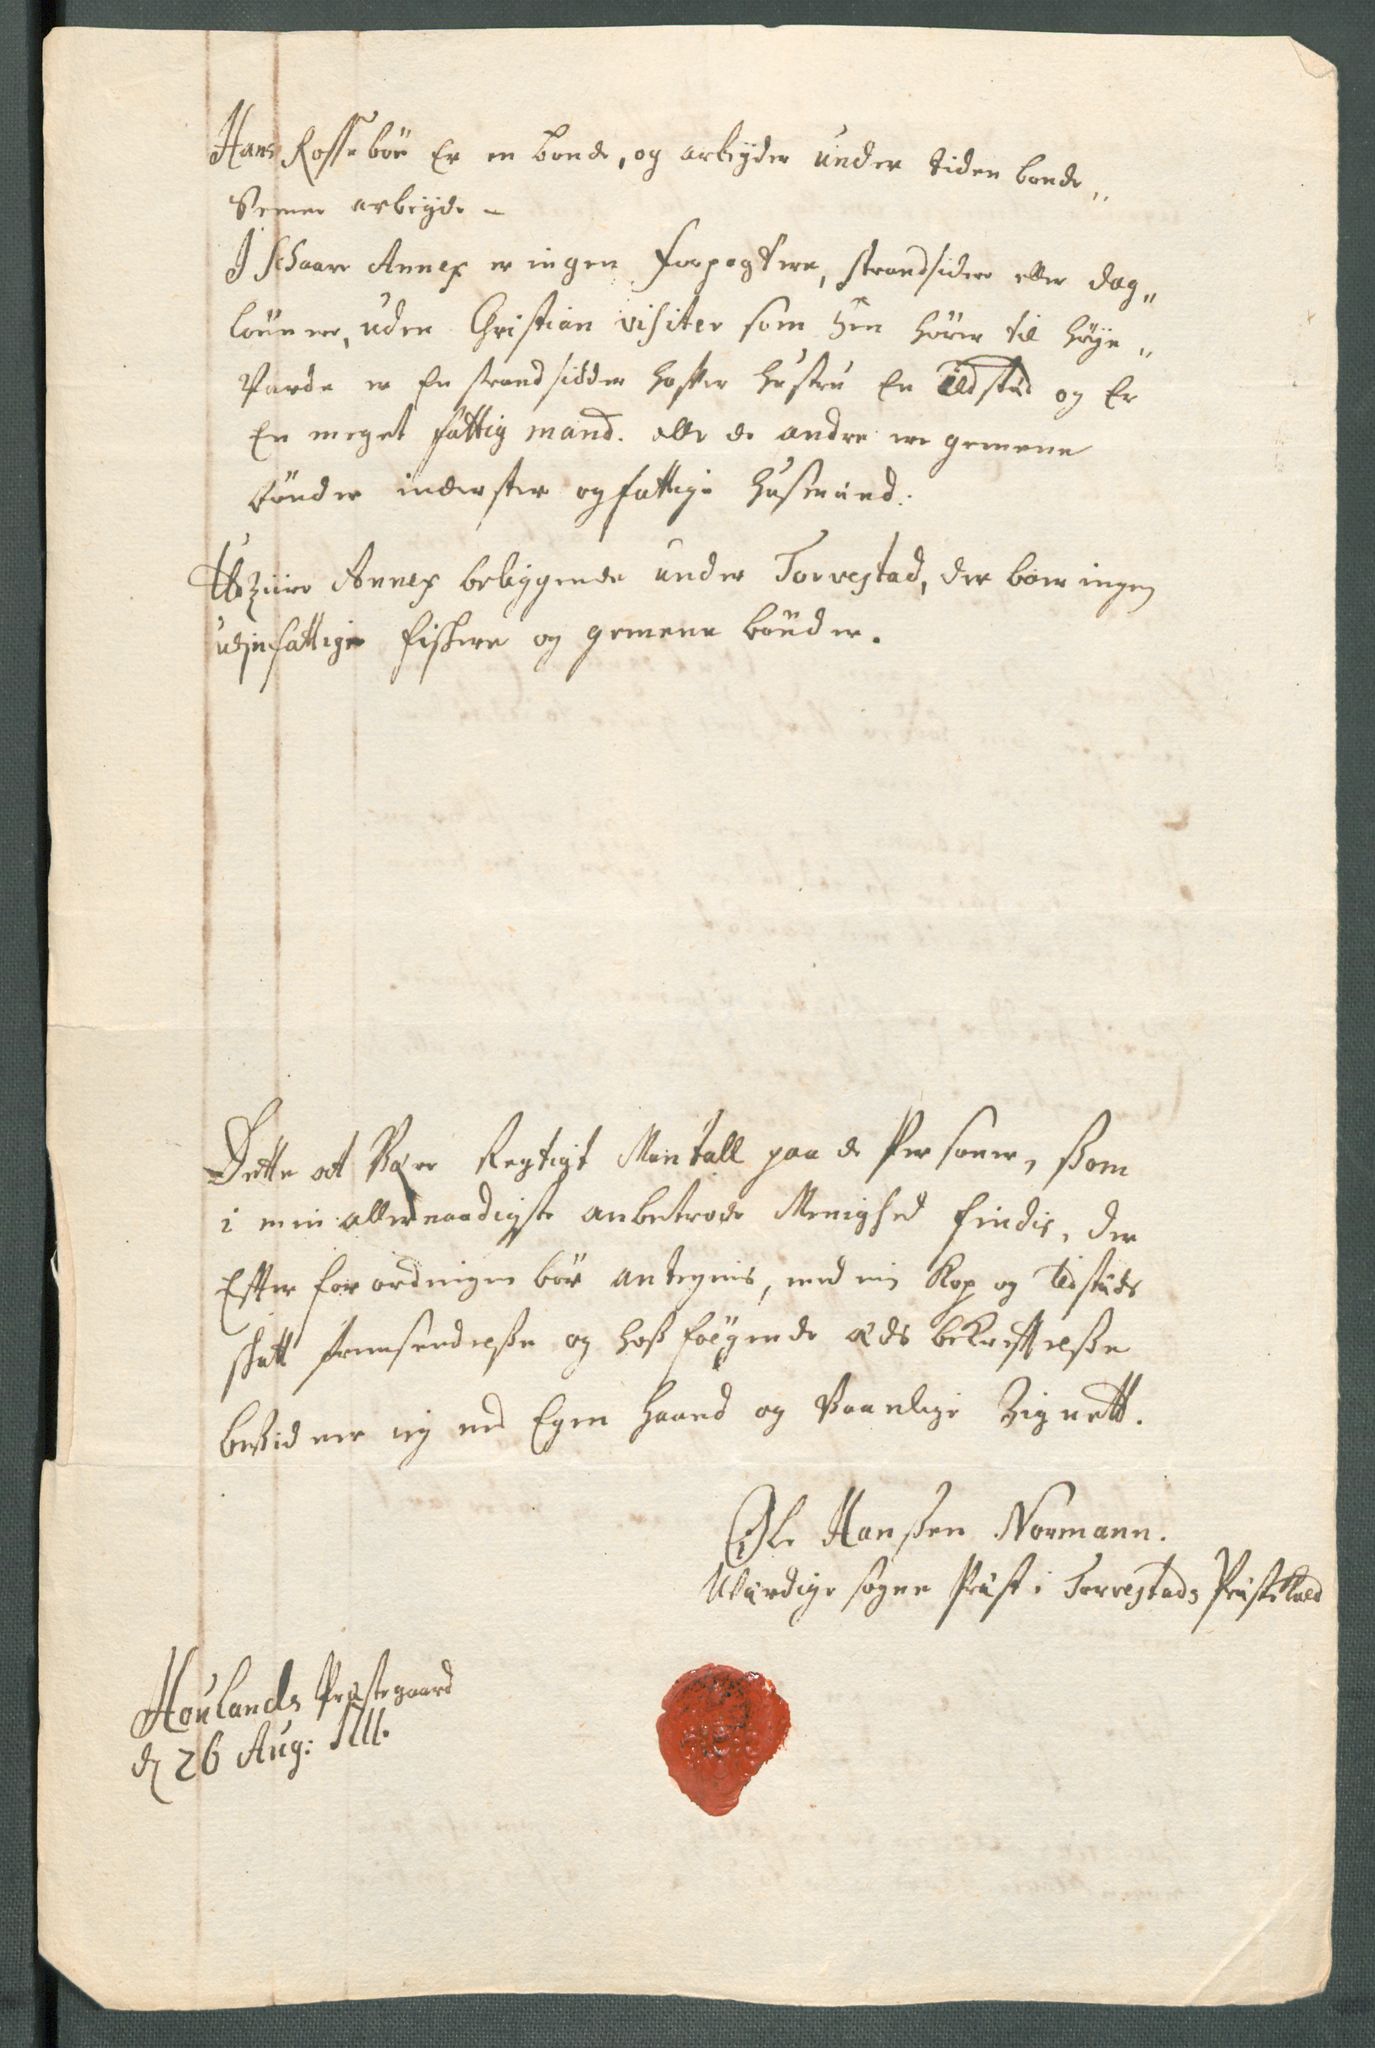 Hans Rosseböe Er en bonde, og arbeyder under tiden bonde„
Semer arbeyde –
J Schaare Annex er ingen forpagtere, strandsidere eller dag„
lönnere, uden Christian visiter som hen hörer til höye„
Varde er En strandsidder haffer hustru En Ildsted og Er
En meget fattig mand. alle de andre ere gemene
bönder inderster og fattige husmænd.
Utziire Annex beliggende under Torvestad, der boer ingen
uden fattige fiskere og gemene bönder.
Dette at Være Regtigt Mantall paa de Personer, ßom
i min allernaadigste anbetrode Menighed findis, der
Effter forordningen bör antegnis, med min Kop og Ildsteds
skatt fremsendelße og hoßföyende æds bekrefftelße
beßidner ieg med Egen haand og Vaanlige Zignett.
Ole Hanßen Normann.
Uværdige sogne Præst i Torvestads Præstekald
Houlands Præstegaard
d 26 Aug: 1711.